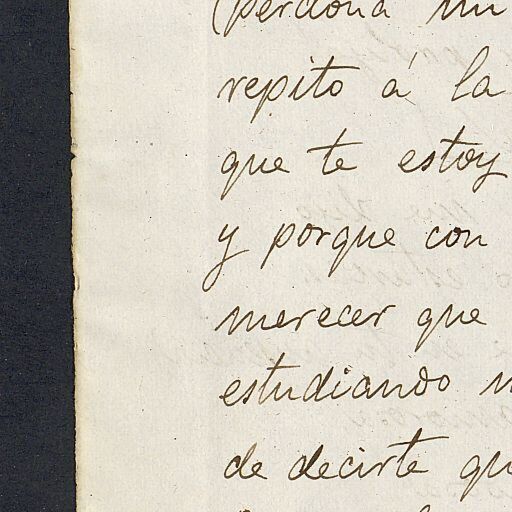 (perdona mi
repito á la
que te estoy
y porque con
merecer que
estudiando
de decirte qu